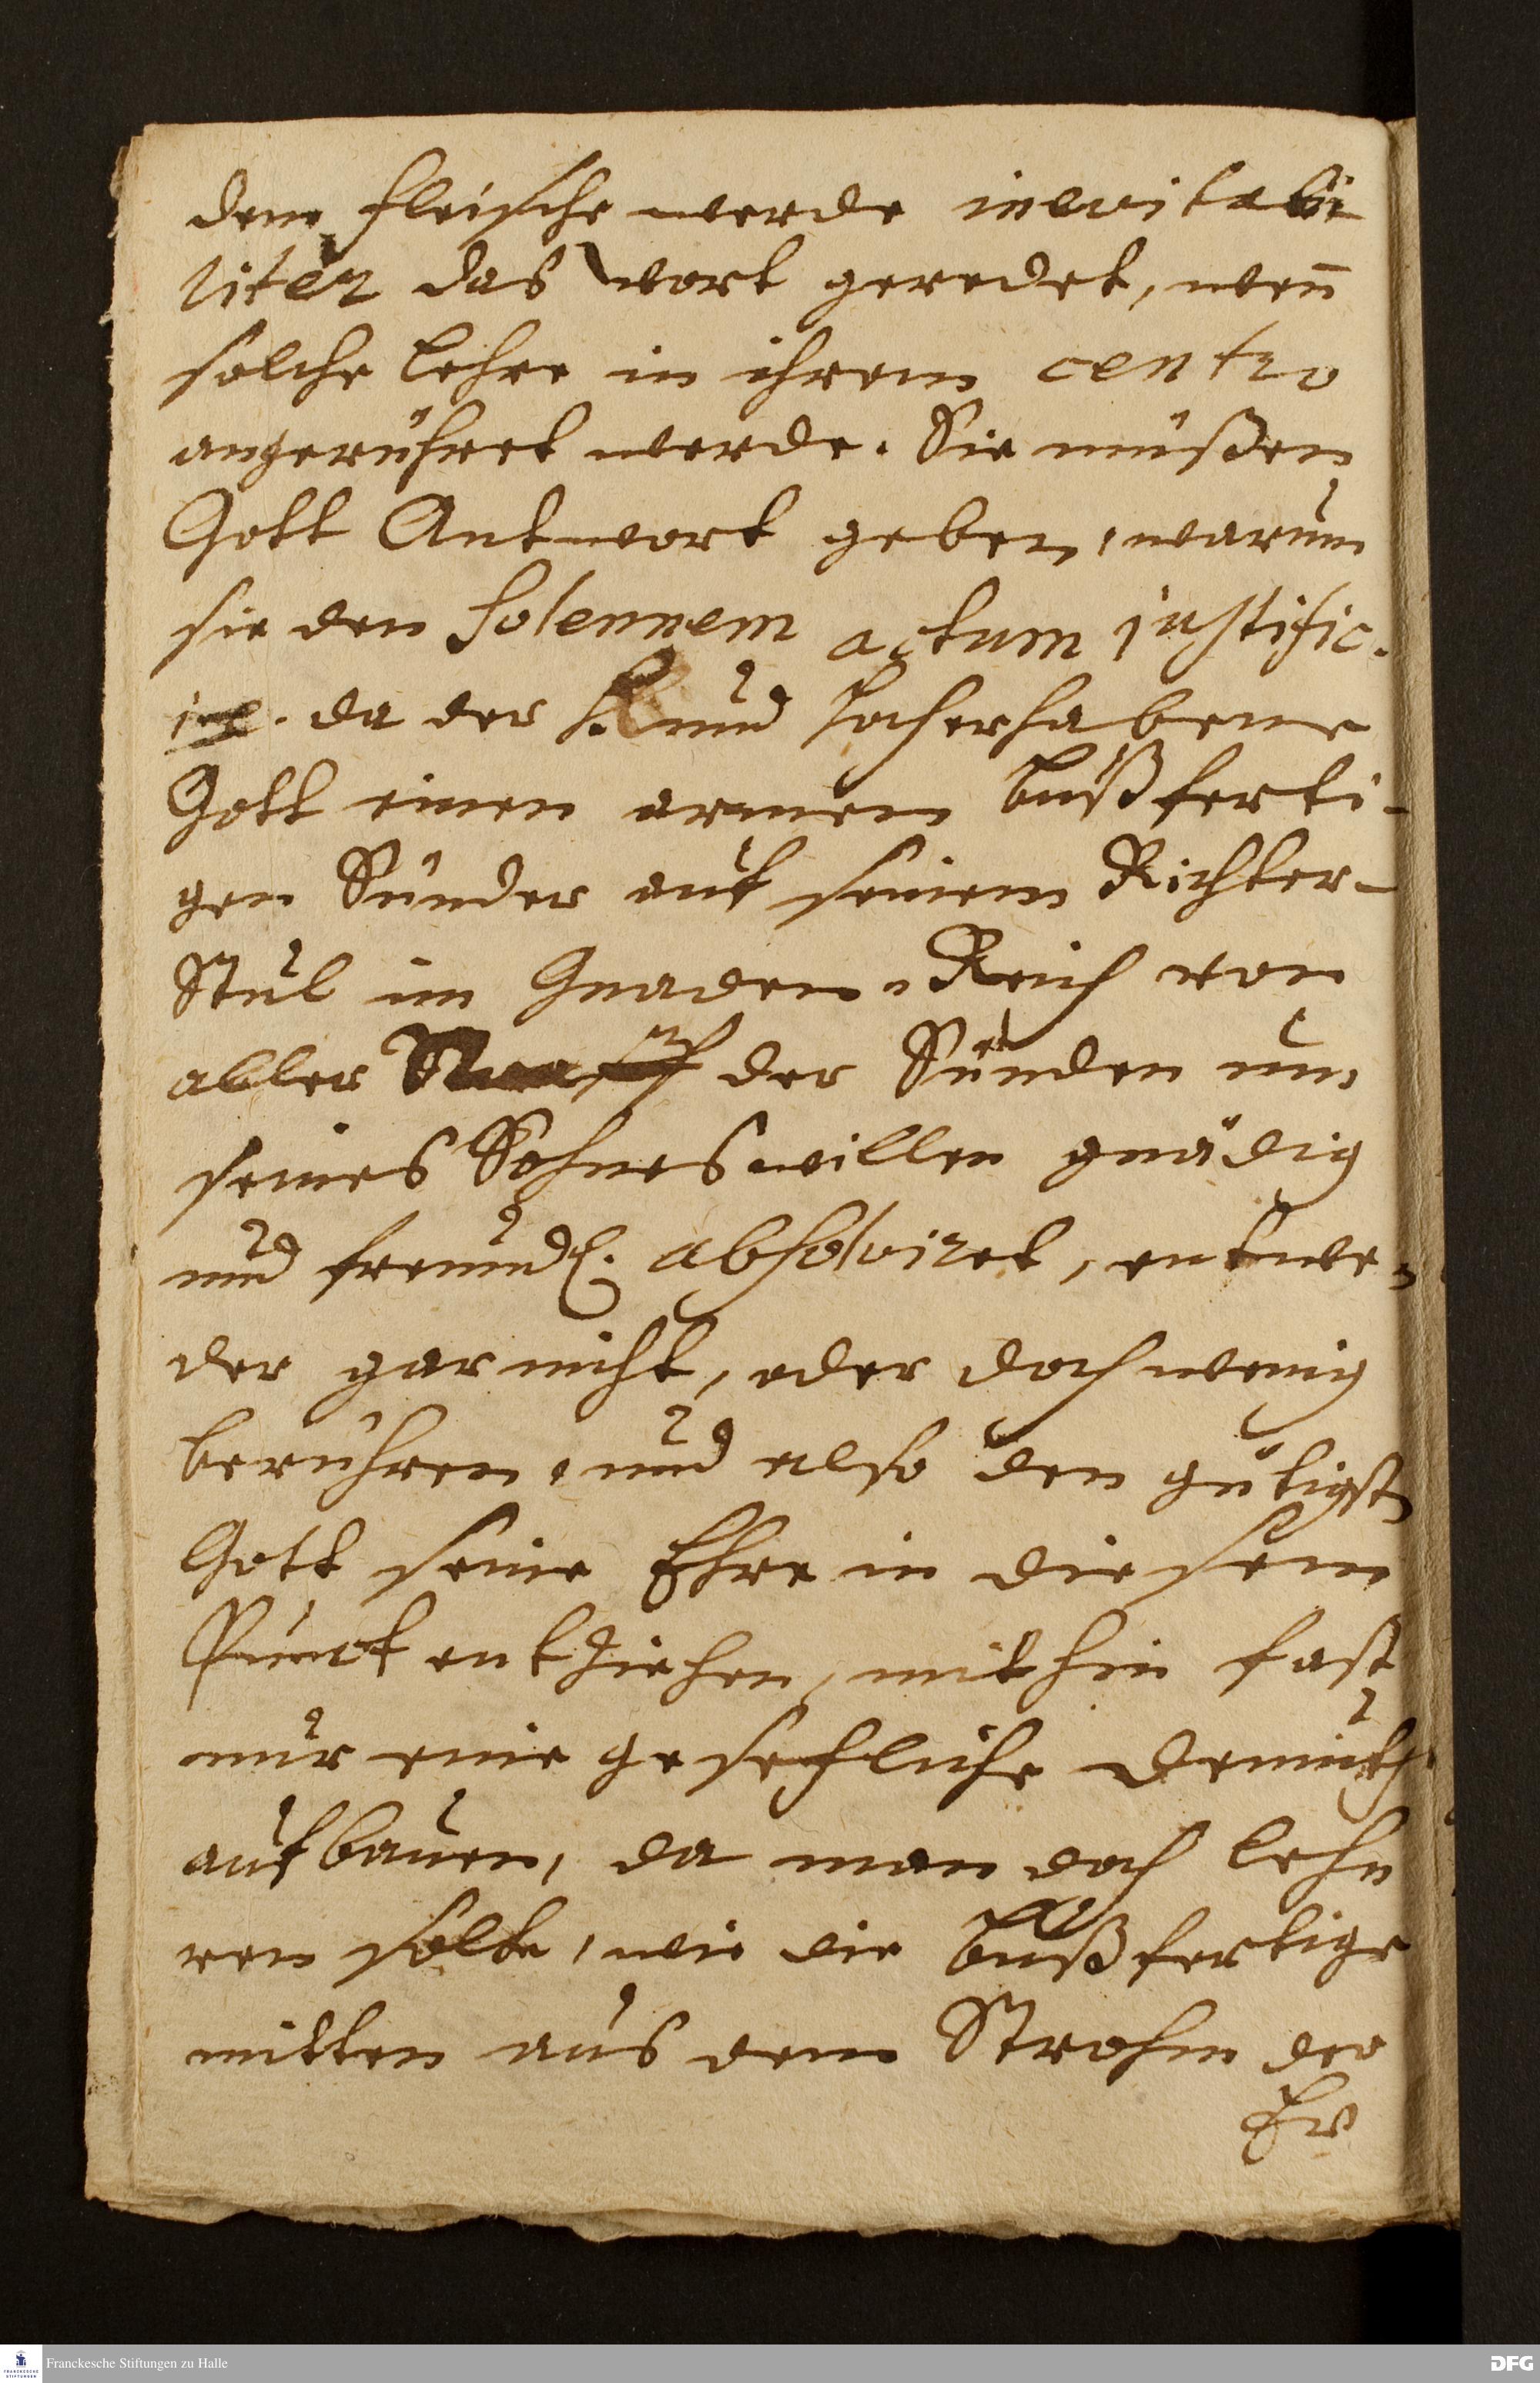 dem fleische werde inevitabi
liter das wort geredet, wen̄
solche Lehre in ihrem centro
angerühret werde. Sie müßen
Gott Antwort geben, warum
sie den Solennem actum justific.
da der H. und hocherhabene
Gott einen armen bußferti-
gen Sünder auf seinem Richter-
Stul im Gnaden-Reich von
aller der Sünden um
seines Sohnes willen gnädig
und freundl. absolviret, entwe-
der gar nicht, oder doch wenig
berühren, und also den gütigsten
Gott seine Ehre in diesem
Punct entziehen, mithin fast
nur eine gesetzliche Demuth
aufbauen, da man doch leh-
ren solte, wie die bußfertige
mitten aus dem Strohm der
Er
Franckesche Stiftungen zu Halle
FRANCKESCHE STIFTUNGEN
DFG